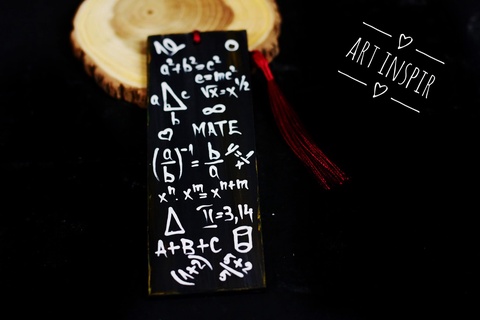 a²+b²=c²
e=mc²
√x=x^1/2
a c
b
∞
MATE
(a/b)⁻¹ = b/a
xⁿ·xᵐ=xⁿ⁺ᵐ
π=3,14
A+B+C
ART INSPIR